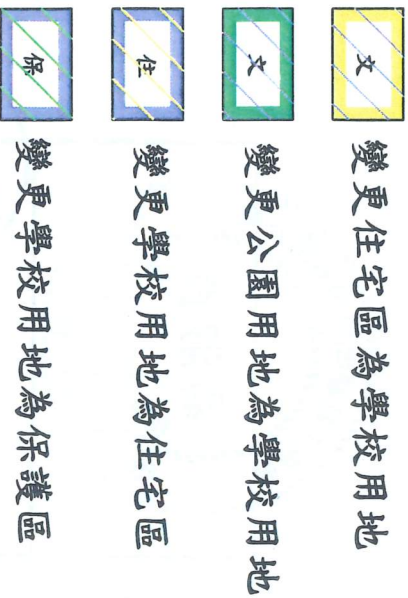 文 變更住宅區為學校用地
文 變更公園用地為學校用地
住 變更學校用地為住宅區
保 變更學校用地為保護區